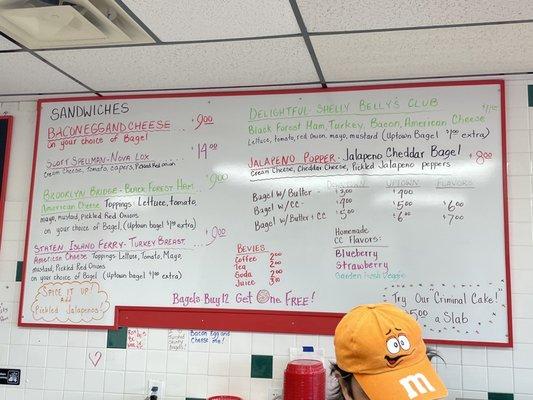 SANDWICHES
BACON EGG AND CHEESE 9.00
on your choice of Bagel
SCOTT SPELLMAN - NOVA LOX $14.00
Cream Cheese, Tomato, Capers, Pickled Red Onion
BROOKLYN BRIDGE - BLACK FOREST HAM $9.00
American Cheese Toppings: Lettuce, tomato,
mayo, mustard, Pickled Red Onions
on your choice of Bagel (Uptown bagel $1.00 extra)
STATEN ISLAND FERRY - TURKEY BREAST $9.00
American Cheese Toppings: Lettuce, Tomato, Mayo,
mustard, Pickled Red Onions
on your choice of Bagel (Uptown bagel $1.00 extra)
SPICE IT UP!
Add
Pickled Jalapenos!
DELIGHTFUL - SHELLY BELLY'S CLUB
Black Forest Ham, Turkey, Bacon, American Cheese
Lettuce, tomato, red onion, mayo, mustard (Uptown Bagel $1.00 extra)
JALAPENO POPPER - Jalapeno Cheddar Bagel $8.00
Cream Cheese, Cheddar Cheese, Pickled Jalapeno peppers
UPTOWN FLAVORS
Bagel w/ Butter - $3.00 $4.00
Bagel w/ CC - $4.00 $5.00 $6.00
Bagel w/ Butter + CC $5.00 $6.00 $7.00
BEVIES
Coffee 2.00
Tea 2.00
Soda 2.00
Juice 3.00
Homemade
CC Flavors:
Blueberry
Strawberry
Garden Fresh Veggie
Bagels Buy 12 Get One FREE!
Try Our Criminal Cake!
$5.00 a Slab
Bacon Egg and
Cheese
m